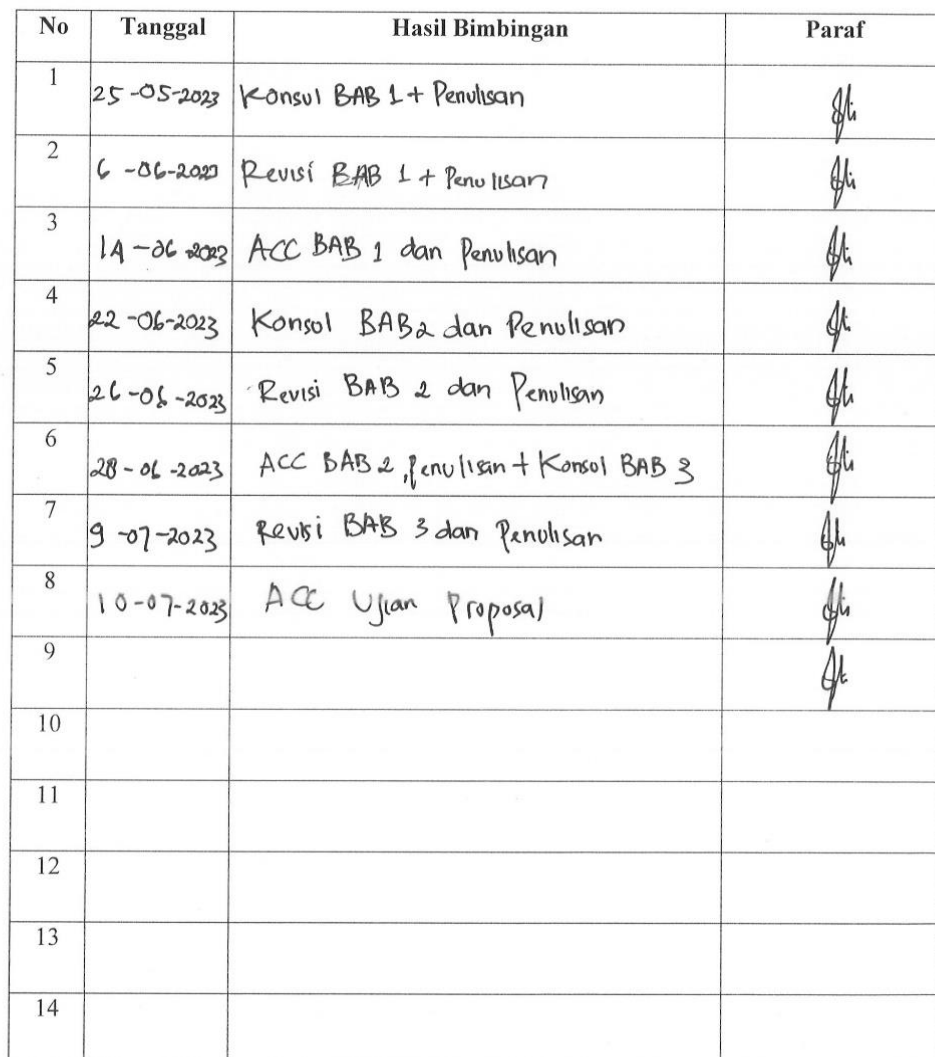 No Tanggal Hasil Bimbingan Paraf
1 25-05-2023 Konsul BAB 1 + Penulisan
2 6-06-2023 Revisi BAB 1 + Penulisan
3 14-06-2023 ACC BAB 1 dan Penulisan
4 22-06-2023 Konsul BAB 2 dan Penulisan
5 26-06-2023 Revisi BAB 2 dan Penulisan
6 28-06-2023 ACC BAB 2, Penulisan + Konsul BAB 3
7 9-07-2023 Revisi BAB 3 dan Penulisan
8 10-07-2023 ACC Ujian Proposal
9
10
11
12
13
14